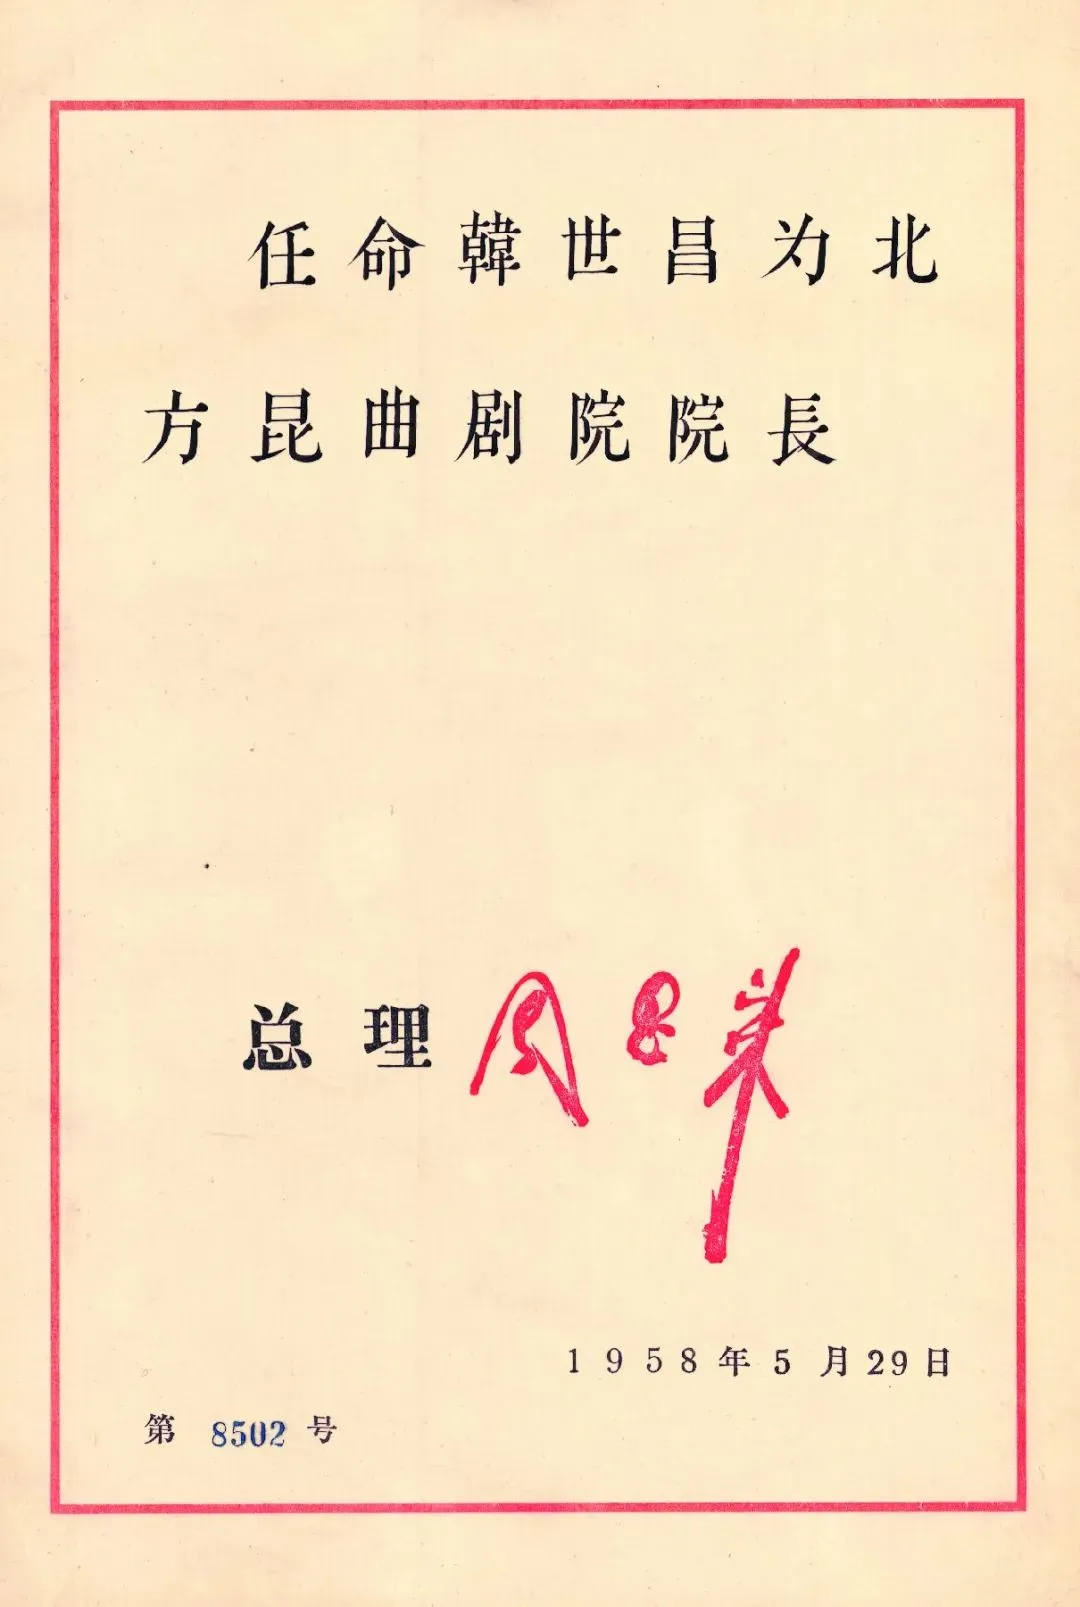 任命韓世昌为北
方昆曲剧院院長
总理 周恩来
1958年5月29日
第 8502 号